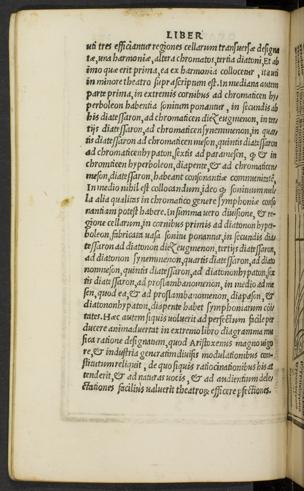 LIBER
uti tres efficiantur regiones cellarum transuersæ designa
tæ, una harmoniæ, altera chromatos, tertia diatoni, Et ab
imo quæ erit prima, ea ex harmonia collocetur, ita uti
in minore theatro suprascriptum est. In mediana autem
parte prima, in extremis cornibus ad chromaticen hy
perboleon habentia sonitum ponantur, in secundis ab
his diatessaron, ad chromaticen diezeugmenon, in ter
tijs diatessaron, ad chromaticen synemmenon, in quar
tis diatessaron ad chromaticen meson, quintis diatessaron
ad chromaticen hypaton, sextis ad paramesen, quod & in
chromaticen hyperboleon, diapente, & ad chromaticen
meson, diatessaron, habeant consonantiæ communitatem,
In medio nihil est collocandum, ideo quod sonitum nul
la alia qualitas in chromatico genere symphoniæ conso
nantiam potest habere. In summa uero diuisione, & re
gione cellarum, in cornibus primis ad diatonon hyper
boleon, fabricata uasa sonitu ponantur, in secundis dia
tessaron ad diatonon diezeugmenon, tertijs diatessaron
ad diatonon synemmenon, quartis diatessaron, ad diato
non meson, quintis diatessaron, ad diatonon hypaton, sex
tis diatessaron, ad proslambanomenon, in medio ad me
sen, quod ea, & ad proslambanomenon, diapason, &
diatonon hypaton, diapente habet symphoniarum com
tates. Hæc autem siquis uoluerit ad perfectum facile per
ducere animaduertat in extremo libro diagramma mu
sica ratione designatum, quod Aristoxenus magno uigo
re, & industria generatim diuisis modulationibus con
stitutum reliquit, de quo siquis ratiocinationibus his at
tenderit, & ad naturas uocis, & ad audientium dele
ctationes facilius ualuerit theatrorum efficere perfectiones.